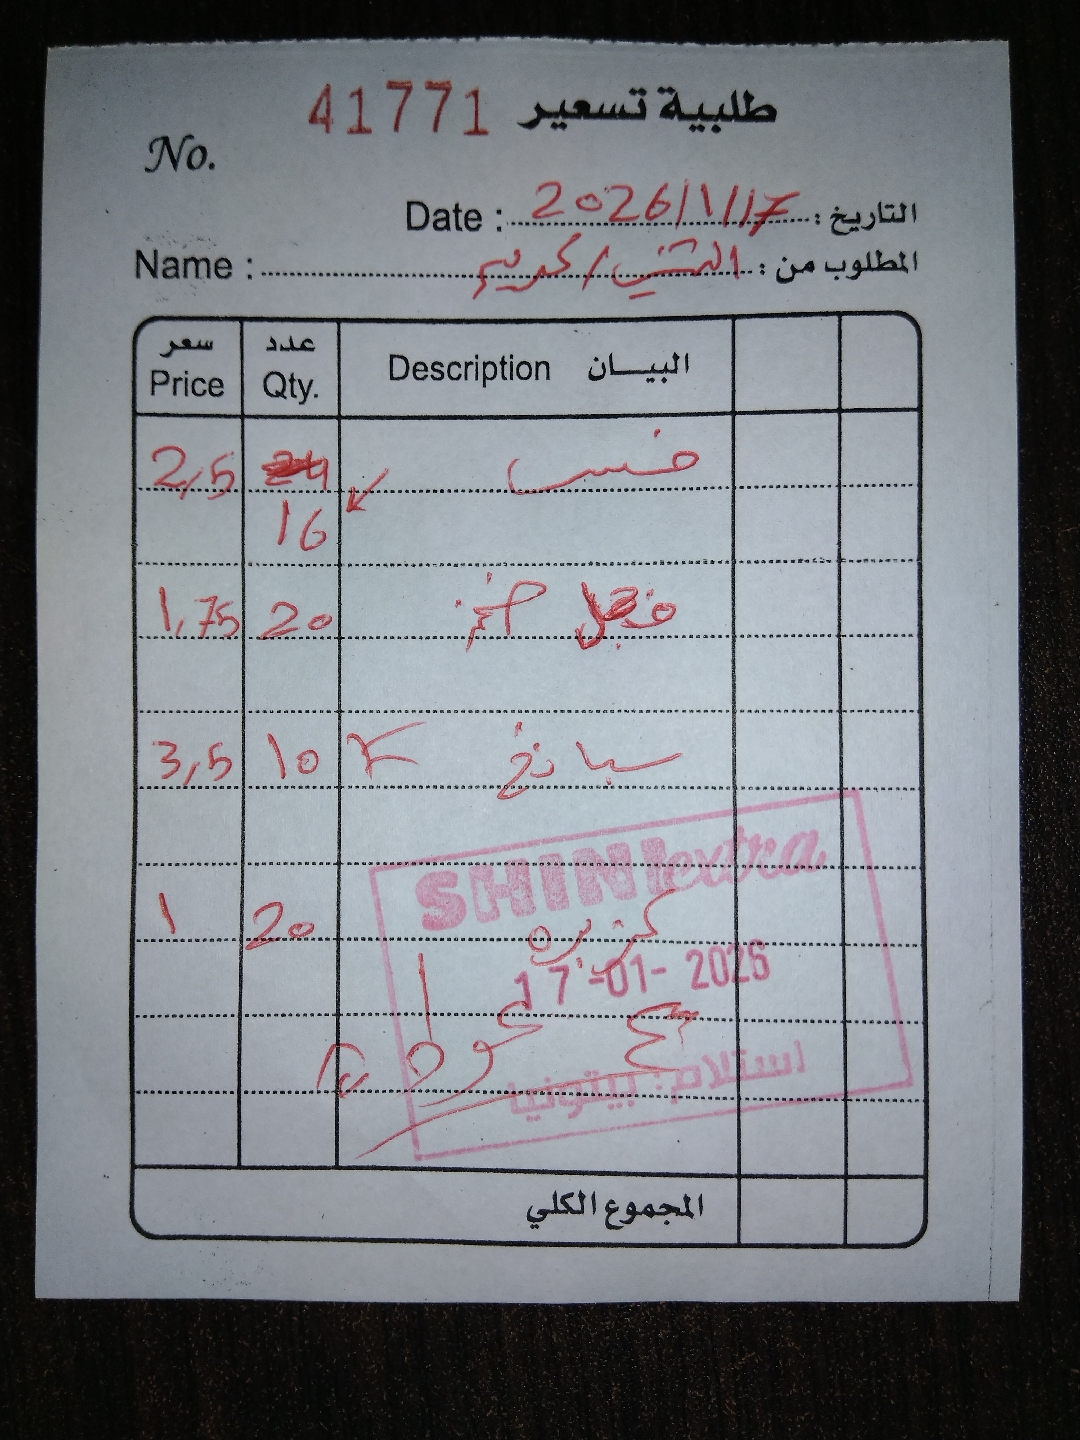 طلبية تسعير 41771
No.
التاريخ : 2026/1/17 Date :
المطلوب من : / كريم Name :
البيـــان Description عدد Qty. سعر Price
خس 24 2,5
16
فجل 20 1,75
سبانخ 10 3,5
SHINI extra
كزبره 20 1
17-01-2026
استلام: بيتونيا
المجموع الكلي